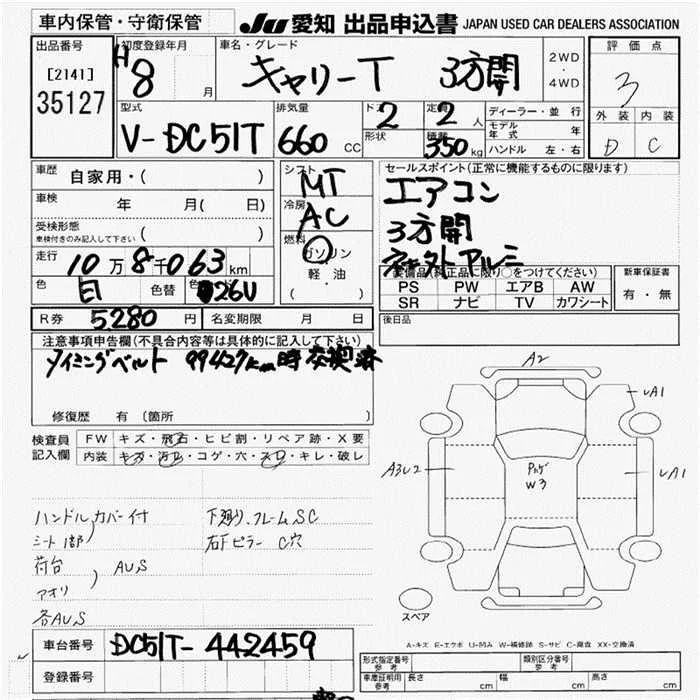 車内保管・守衛保管
JU 愛知 出品申込書 JAPAN USED CAR DEALERS ASSOCIATION
出品番号 [2141] 35127
初度登録年月 H8 月
車名・グレード キャリーT 3方開
2WD・4WD
評価点 3
外装 D 内装 C
型式 V-DC51T
排気量 660 CC
ドア 2 形状
定員 2人
積載 350kg
ディーラー・並行
モデル年式 年
ハンドル 左・右
車歴 自家用・( )
車検 年 月( 日)
受検形態 車検付きのみ記入して下さい ( )
走行 10万8千063km
色 白 色替 26U
シフト MT
冷房 AC
燃料 ガソリン 軽・油 ( )
セールスポイント(正常に機能するものに限ります)
エアコン
3方開
社外アルミ
装備品(純正品に限り○をつけてください)
PS PW エアB AW
SR ナビ TV カワシート
新車保証書 有・無
R券 5280円 名変期限 月 日
後日品
注意事項申告欄(不具合内容等は具体的に記入して下さい)
タイミングベルト 99427km時交換済
修復歴 有 (箇所
検査員記入欄
FW キズ・飛石・ヒビ割・リペア跡・X要
内装 キズ・汚れ・コゲ・穴・スレ・キレ・破レ
ハンドルカバー付 下廻り、フレームSC
シート1部 右Fピラー C穴
荷台 AUS
アオリ
各AUS
A2
UA1
A3U2
W3
UA1
スペア
A-キズ E-エクボ U-凹み W-補修跡 S-サビ C-腐食 XX-交換済
車台番号 DC51T-442459
登録番号
形式指定番号 参考
類別区分番号 参考
車庫証明用 参考 長さ cm 幅 cm 高さ cm